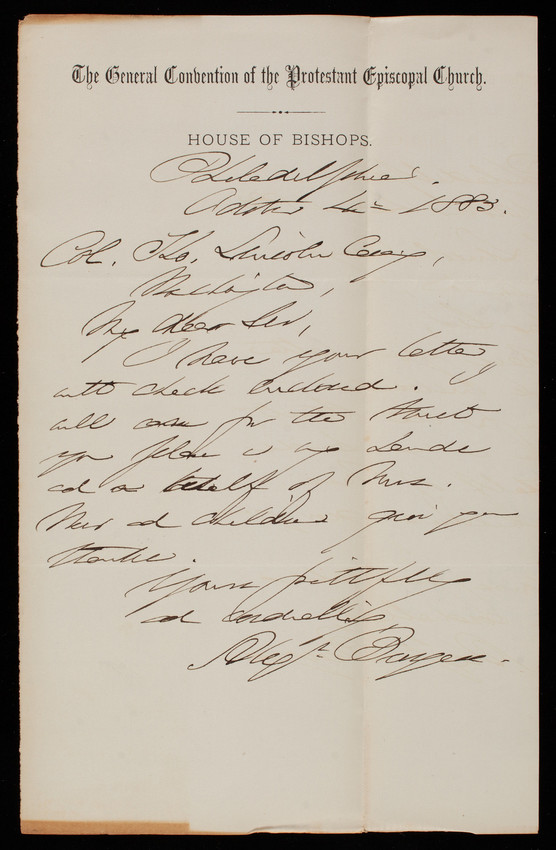 The General Convention of the Protestant Episcopal Church.
HOUSE OF BISHOPS.
Philadelphia.
October 4th 1883.
Col. Tho. Lincoln Casey,
Washington,
My dear Sir,
I have your letter
with check enclosed. I
will care for the trust
you place in my hands
and on behalf of Mrs.
and children give you
thanks.
Yours faithfully
and cordially
Alexr. Burgess.